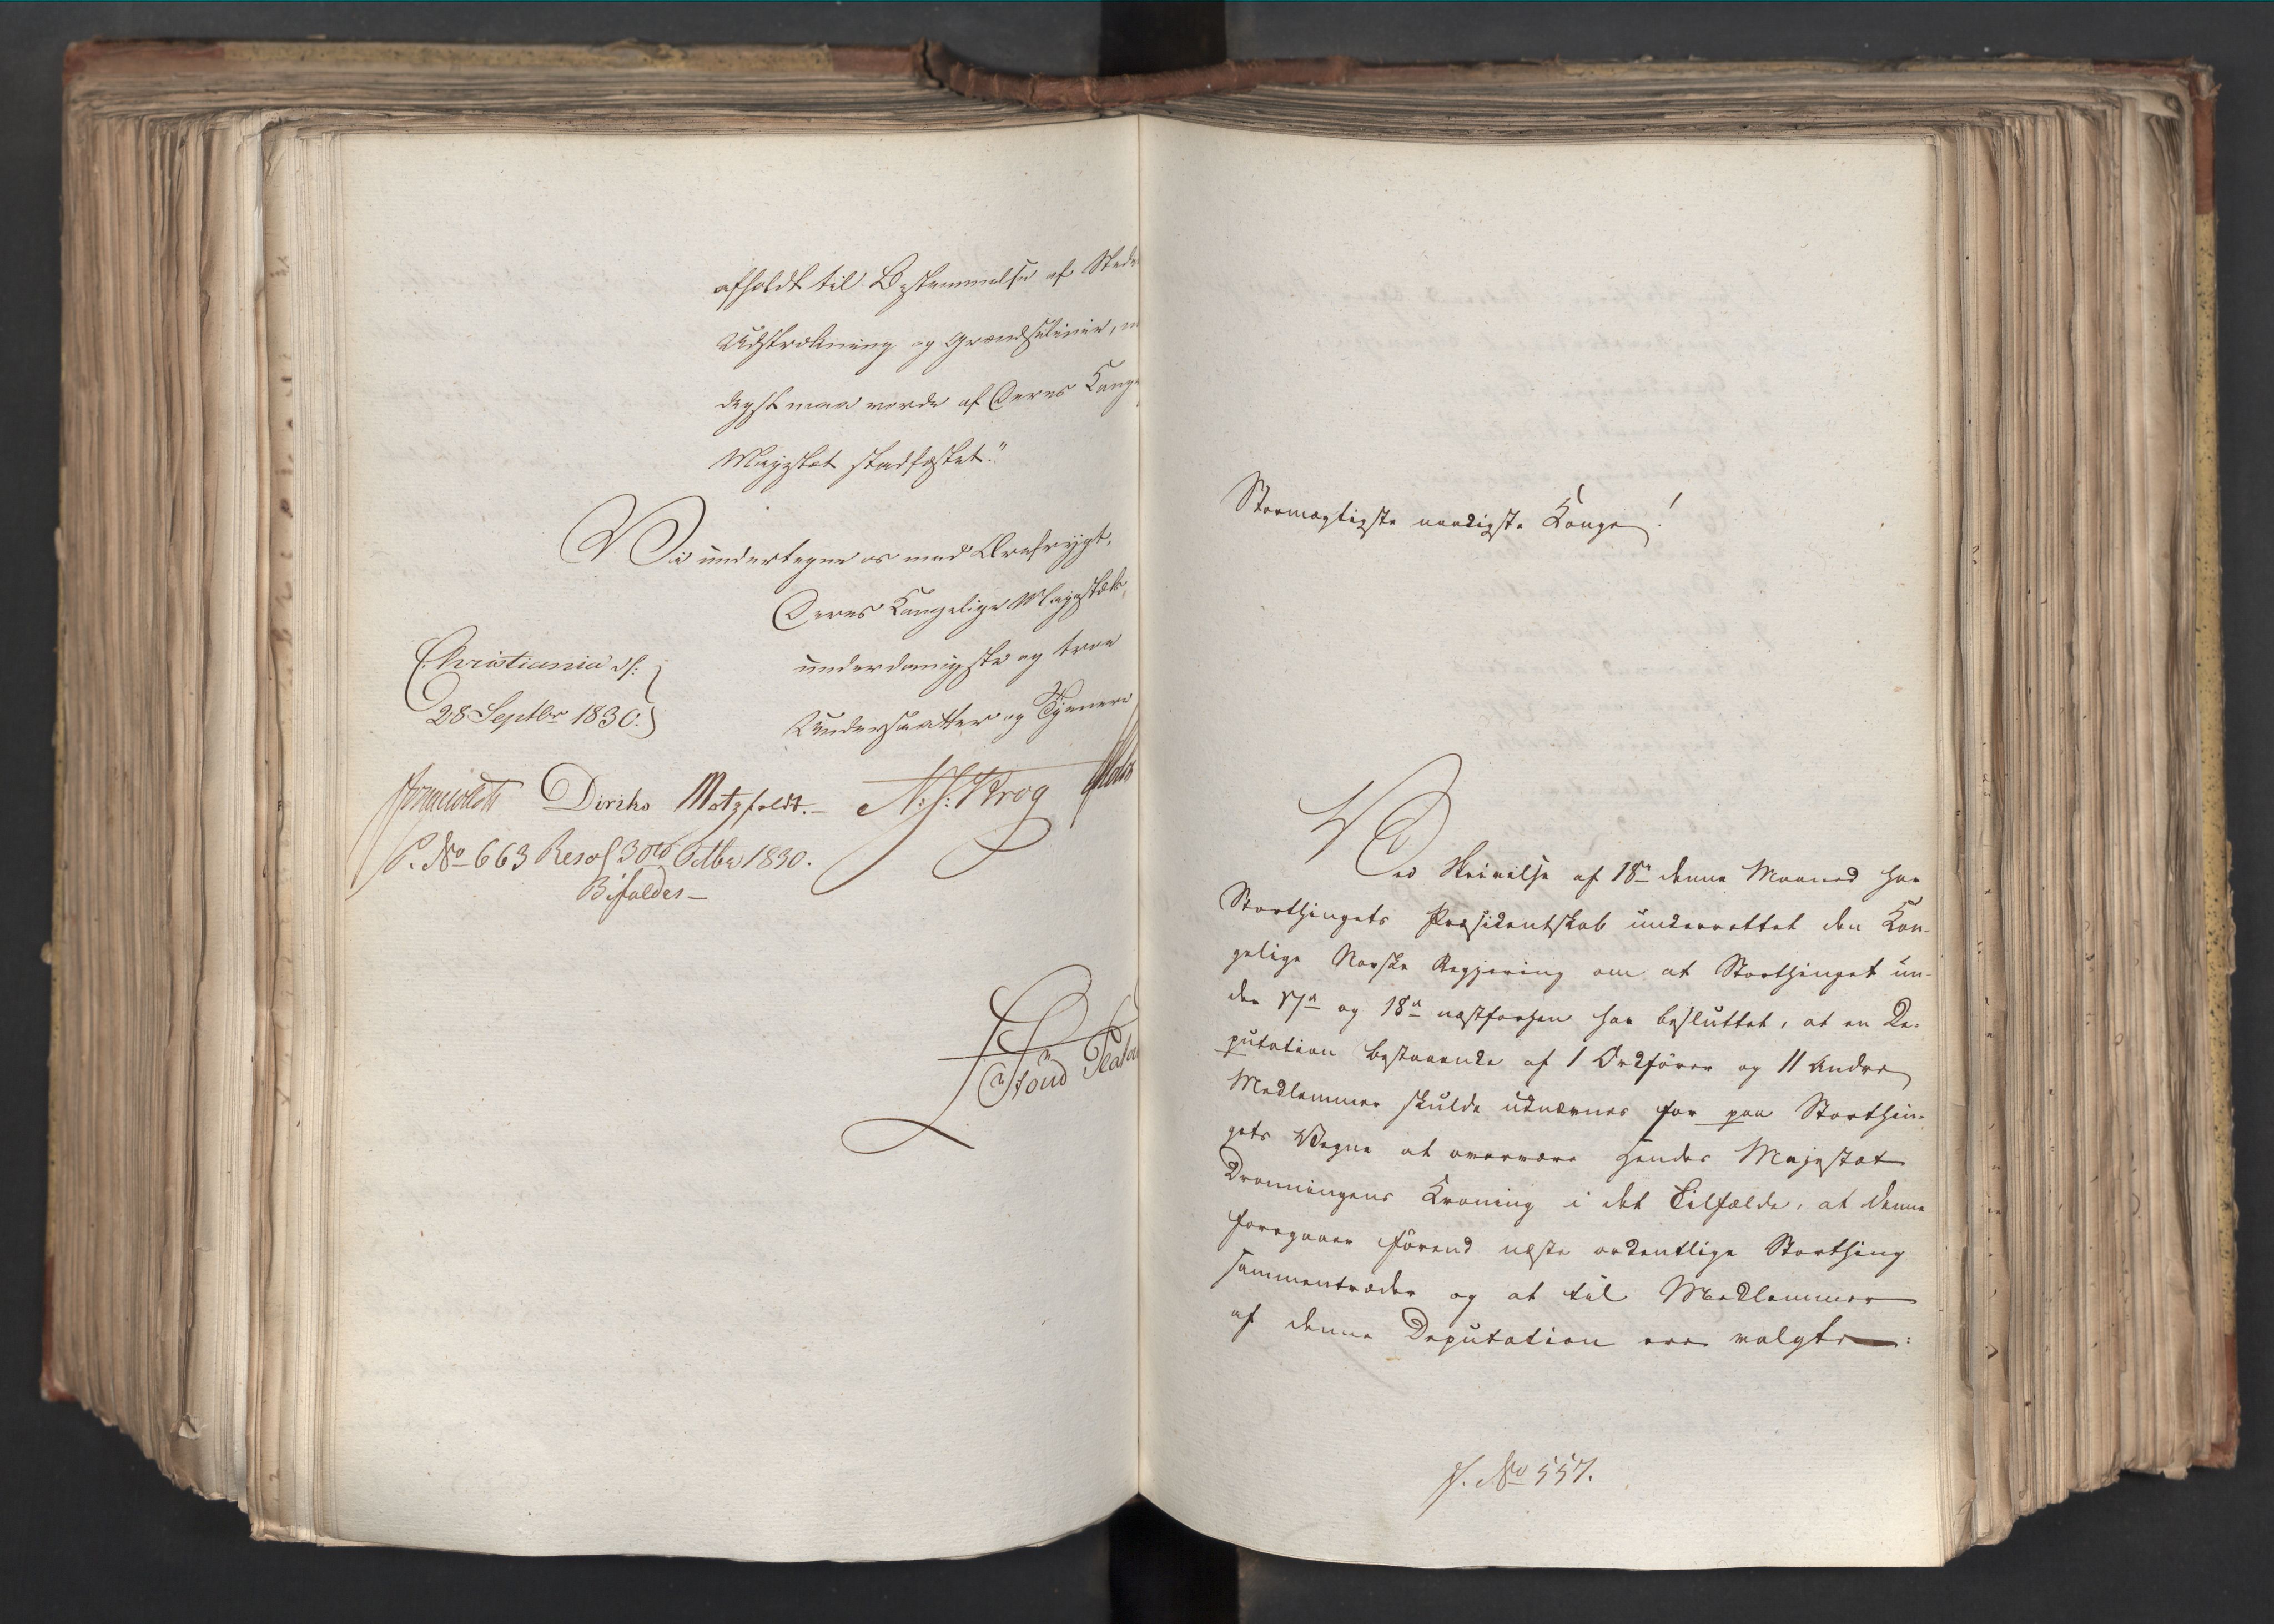 afholdt til Bestemmelse af Stede
Udstrækning og Grændselinier, n
digst maa vorde af Deres Konge
Majestæt stadfæstet."
Vi undertegne os med Ærefrygt,
Deres Kongelige Majestæts,
underdanigste og troe
Undersaatter og Tjenere
Christiania d:
28 Septbr 1830.
Diriks Motzfeldt.- N: J: Krog
P. No 663 Resol 30te Octbr 1830.
Bifaldes-
Stormægtigste naadigste Konge!
Ved Skrivelse af 18de denne Maaned har
Storthingets Præsidentskab underrettet den Kon-
gelige Norske Regjering om at Storthinget un-
der 17de og 18de næstforhen har besluttet, at en De-
putation bestaaende af 1 Ordfører og 11 andre
Medlemmer skulde udnævnes for paa Storthin-
gets Vegne at overvære Hendes Majestæt
Dronningens Kroning i det Tilfælde, at denne
foregaaer førend næste ordentlige Storthing
sammentræder og at til Medlemmer
af denne Deputation ere valgte:
No 557.